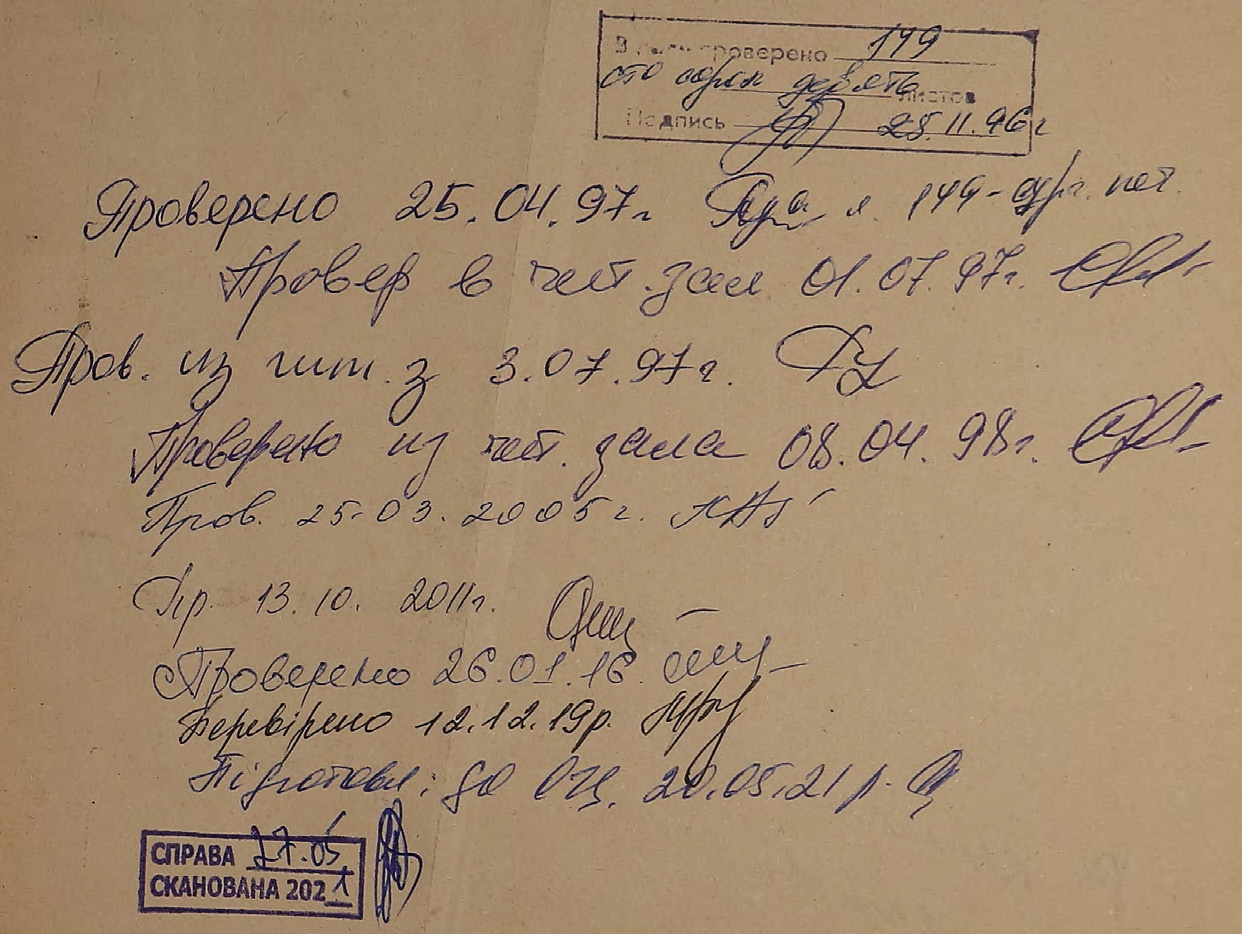 В деле проверено 149
сто сорок девять листов
Подпись 25.11.96г
Проверено 25.04.97г. л. 149 - нет.
Провер в чит. зал 01.07.97г.
Пров. из чит. з 3.07.97г.
Проверено из чит. зала 08.04.98г.
Пров. 25.03.2005г.
Пр. 13.10.2011г.
Проверено 26.01.16.
Перевірено 12.12.19р.
Підготовл: до ОЦ. 20.05.21р.
СПРАВА 27.05
СКАНОВАНА 2021